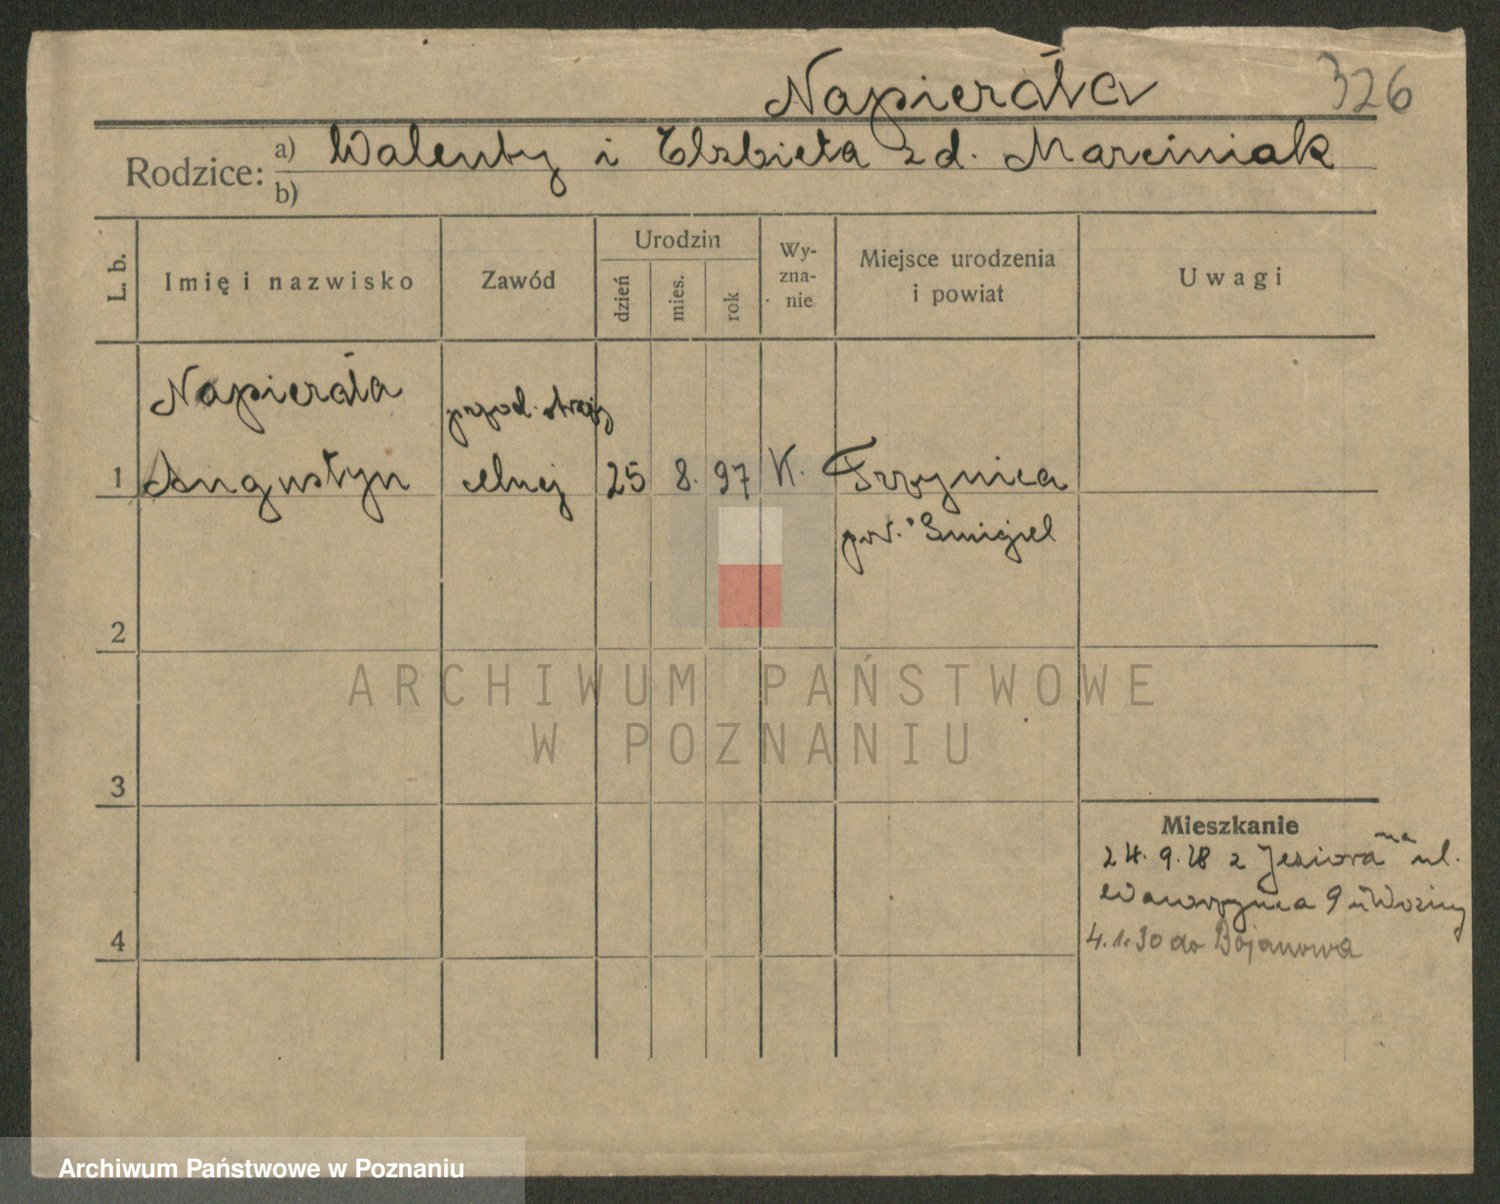 Napierała 326
Rodzice: a) Walenty i Elżbieta z d. Marciniak
b)
L. b.
Imię i nazwisko
Zawód
Urodzin
dzień
mies.
rok
Wy-
zna-
nie
Miejsce urodzenia
i powiat
Uwagi
Napierała przod. straży
1 Augustyn celnej 25 8. 97 K.
pow. Śmigiel
2
3
4
Mieszkanie
24. 9. 28 z Jeziora na ul.
Wawrzyńca 9 u Woźny
4. 1. 30 do Bojanowa
ARCHIWUM PAŃSTWOWE
W POZNANIU
Archiwum Państwowe w Poznaniu